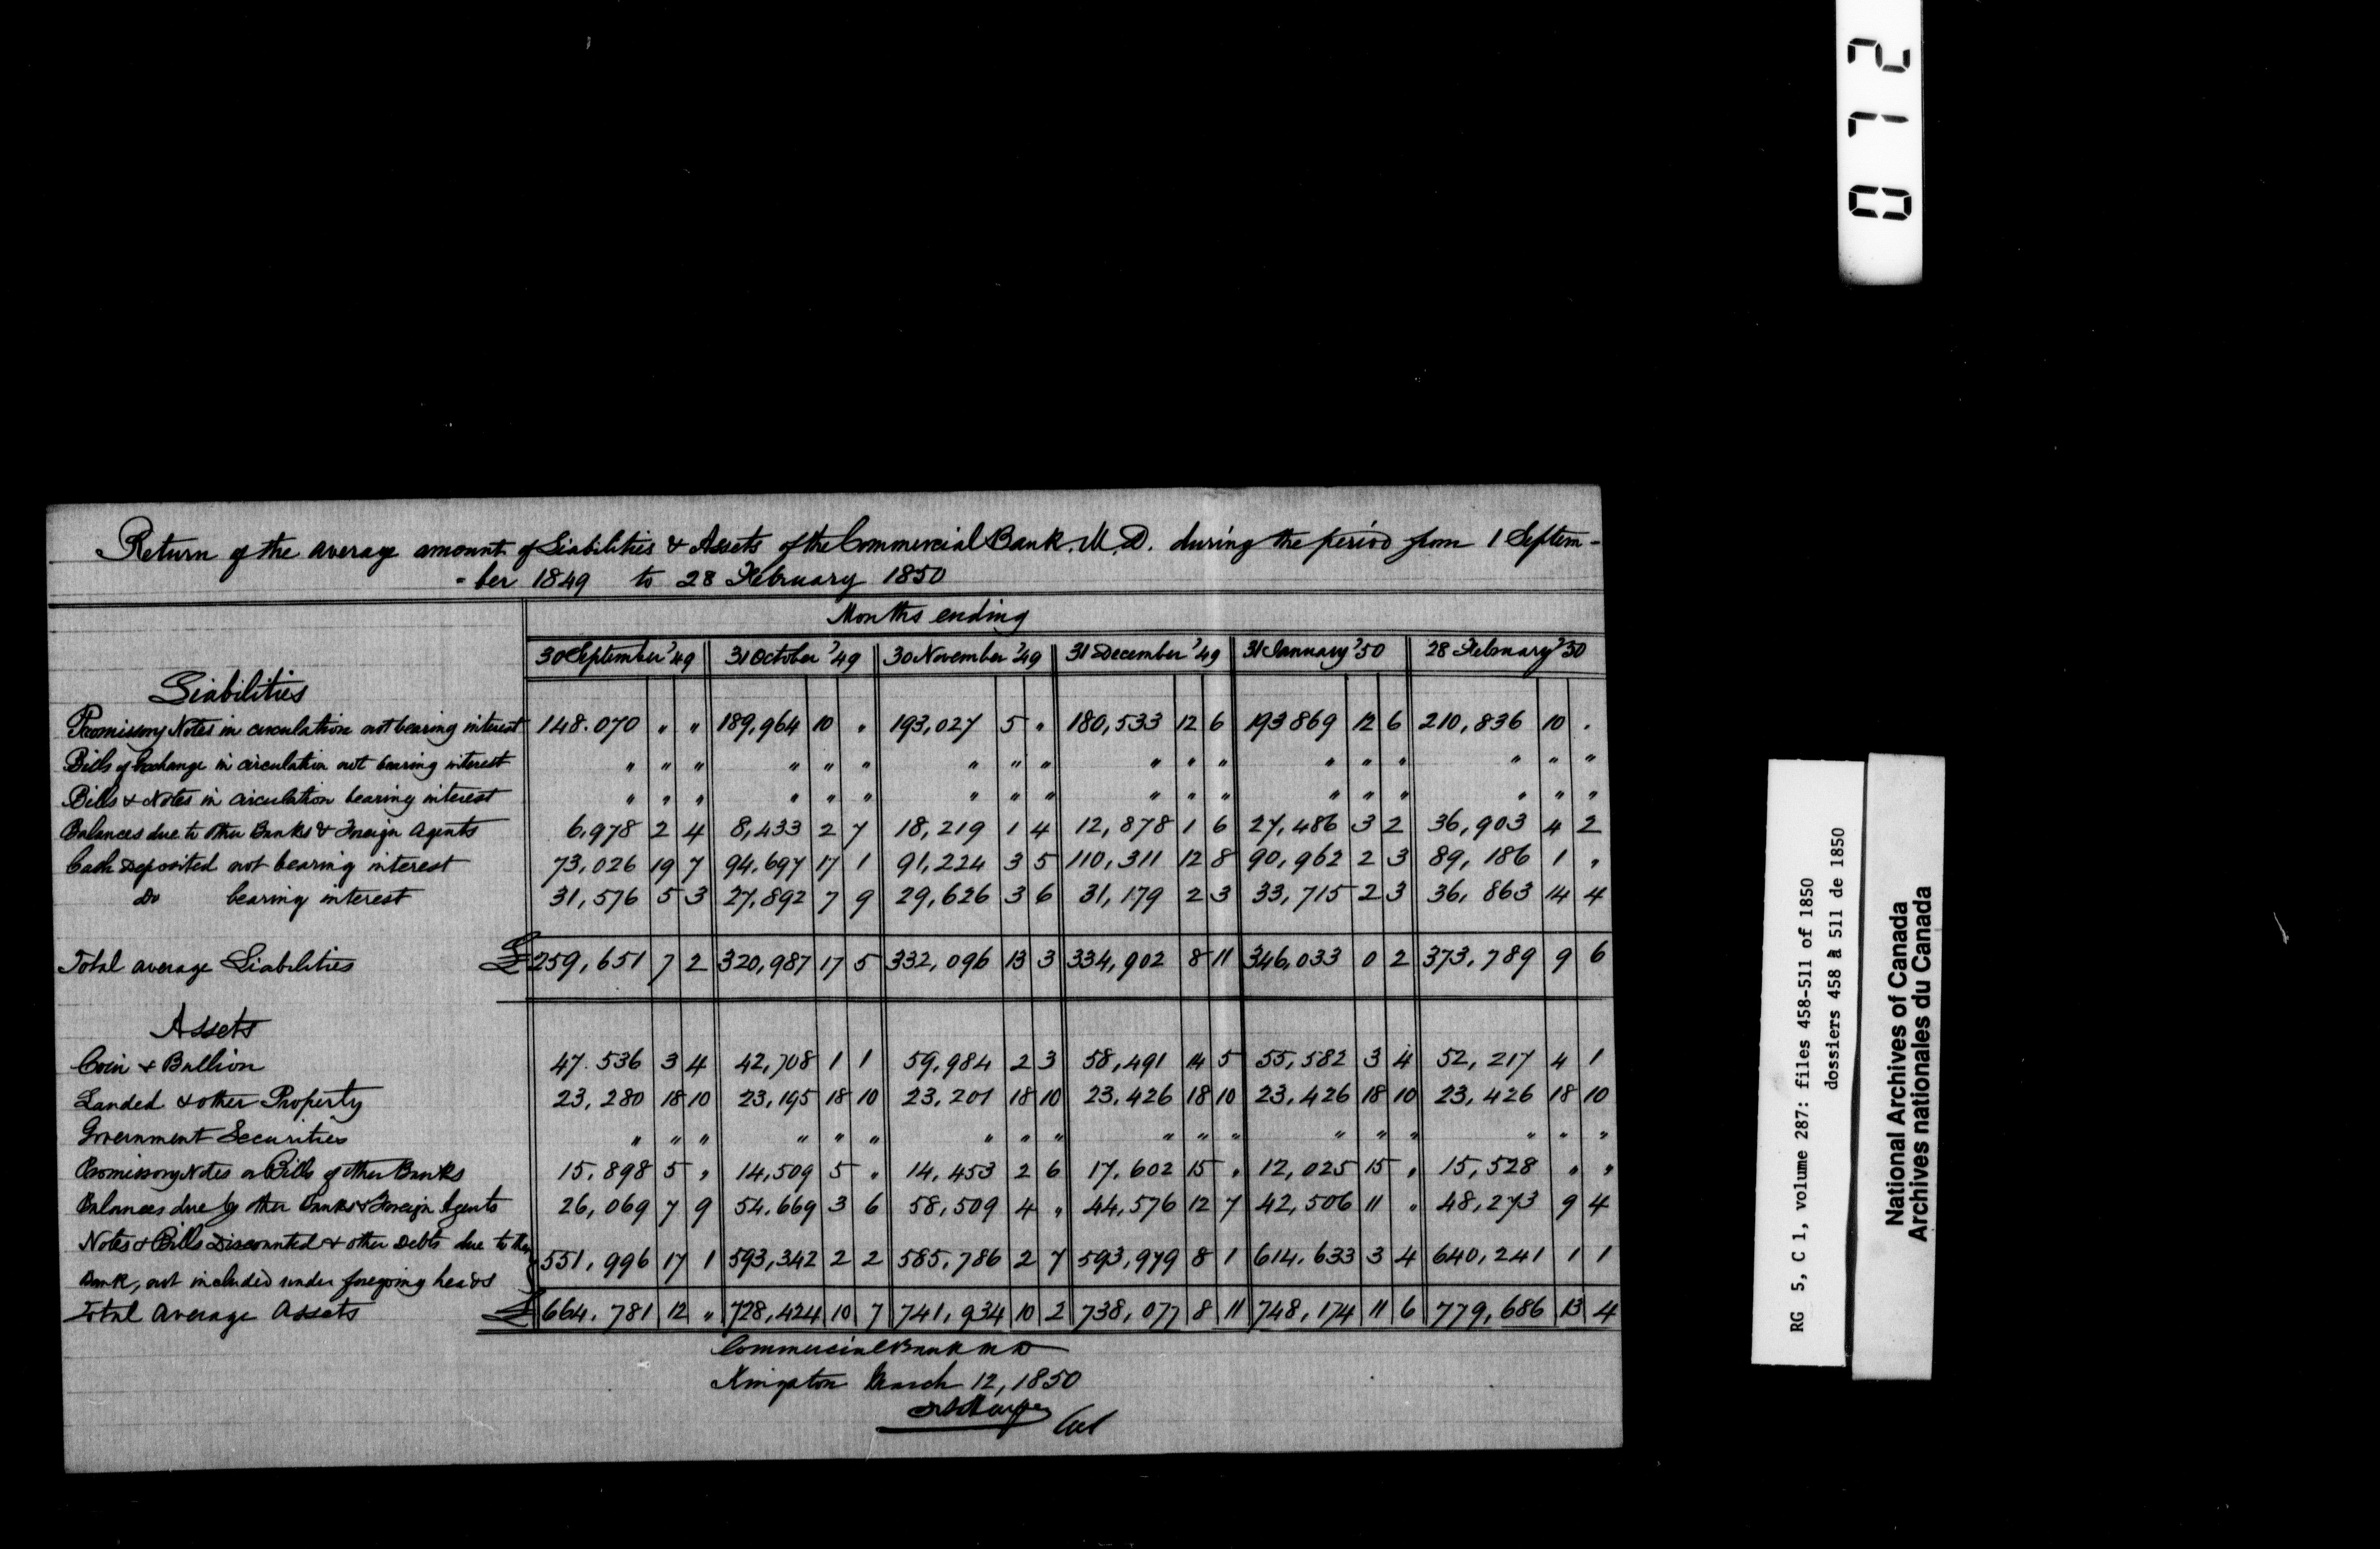 0712
Return of the average amount of Liabilities & Assets of the Commercial Bank. M. D. during the period from 1 Septem-
-ber 1849 to 28 February 1850
Months ending
30 September '49 31 October '49 30 November '49 31 December '49 31 January '50 28 February '50
Liabilities
Promissory Notes in circulation not bearing interest 148.070 " " 189,964 10 " 193,027 5 " 180,533 12 6 193869 12 6 210,836 10 .
Bills of Exchange in circulation not bearing interest " " " " " " " " " " " " " " " " " "
Bills & Notes in circulation bearing interest " " " " " " " " " " " " " " " " " "
Balances due to other Banks & Foreign Agents 6,978 2 4 8,433 2 7 18,219 1 4 12,878 1 6 27,486 3 2 36,903 4 2
Cash Deposited not bearing interest 73,026 19 7 94,697 17 1 91,224 3 5 110,311 12 8 90,962 2 3 89,186 1 "
Do bearing interest 31,576 5 3 27,892 7 9 29,626 3 6 31,179 2 3 33,715 2 3 36,863 14 4
Total average Liabilities £ 259,651 7 2 320,987 17 5 332,096 13 3 334,902 8 11 346,033 0 2 373,789 9 6
Assets
Coin & Bullion 47.536 3 4 42,708 1 1 59,984 2 3 58,491 14 5 55,582 3 4 52,217 4 1
Landed & other Property 23,280 18 10 23,195 18 10 23,201 18 10 23,426 18 10 23,426 18 10 23,426 18 10
Government Securities " " " " " " " " " " " " " " " " " "
Promissory Notes or Bills of other Banks 15,898 5 " 14,509 5 " 14,453 2 6 17,602 15 " 12,025 15 " 15,528 " "
Balances due by other Banks & Foreign Agents 26,069 7 9 54,669 3 6 58,509 4 " 44,576 12 7 42,506 11 " 48,273 9 4
Notes & Bills Discounted & other Debts due to the
Bank, not included under foregoing heads 551,996 17 1 593,342 2 2 585,786 2 7 593,979 8 1 614,633 3 4 640,241 1 1
Total Average Assets £ 664,781 12 " 728,424 10 7 741,934 10 2 738,077 8 11 748,174 11 6 779,686 13 4
Commercial Bank M D
Kingston March 12, 1850
RG 5, C 1, volume 287: files 458-511 of 1850
dossiers 458 à 511 de 1850
National Archives of Canada
Archives nationales du Canada